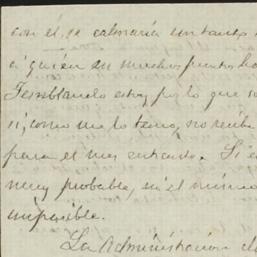 con él, se calmaría un tanto
á quien en muchos puntos
Temblando estoy por lo que
si, como me lo temo, no recibe
para el mes entrante. Si e
muy probable, en el mismo
imposible.
La Administración d